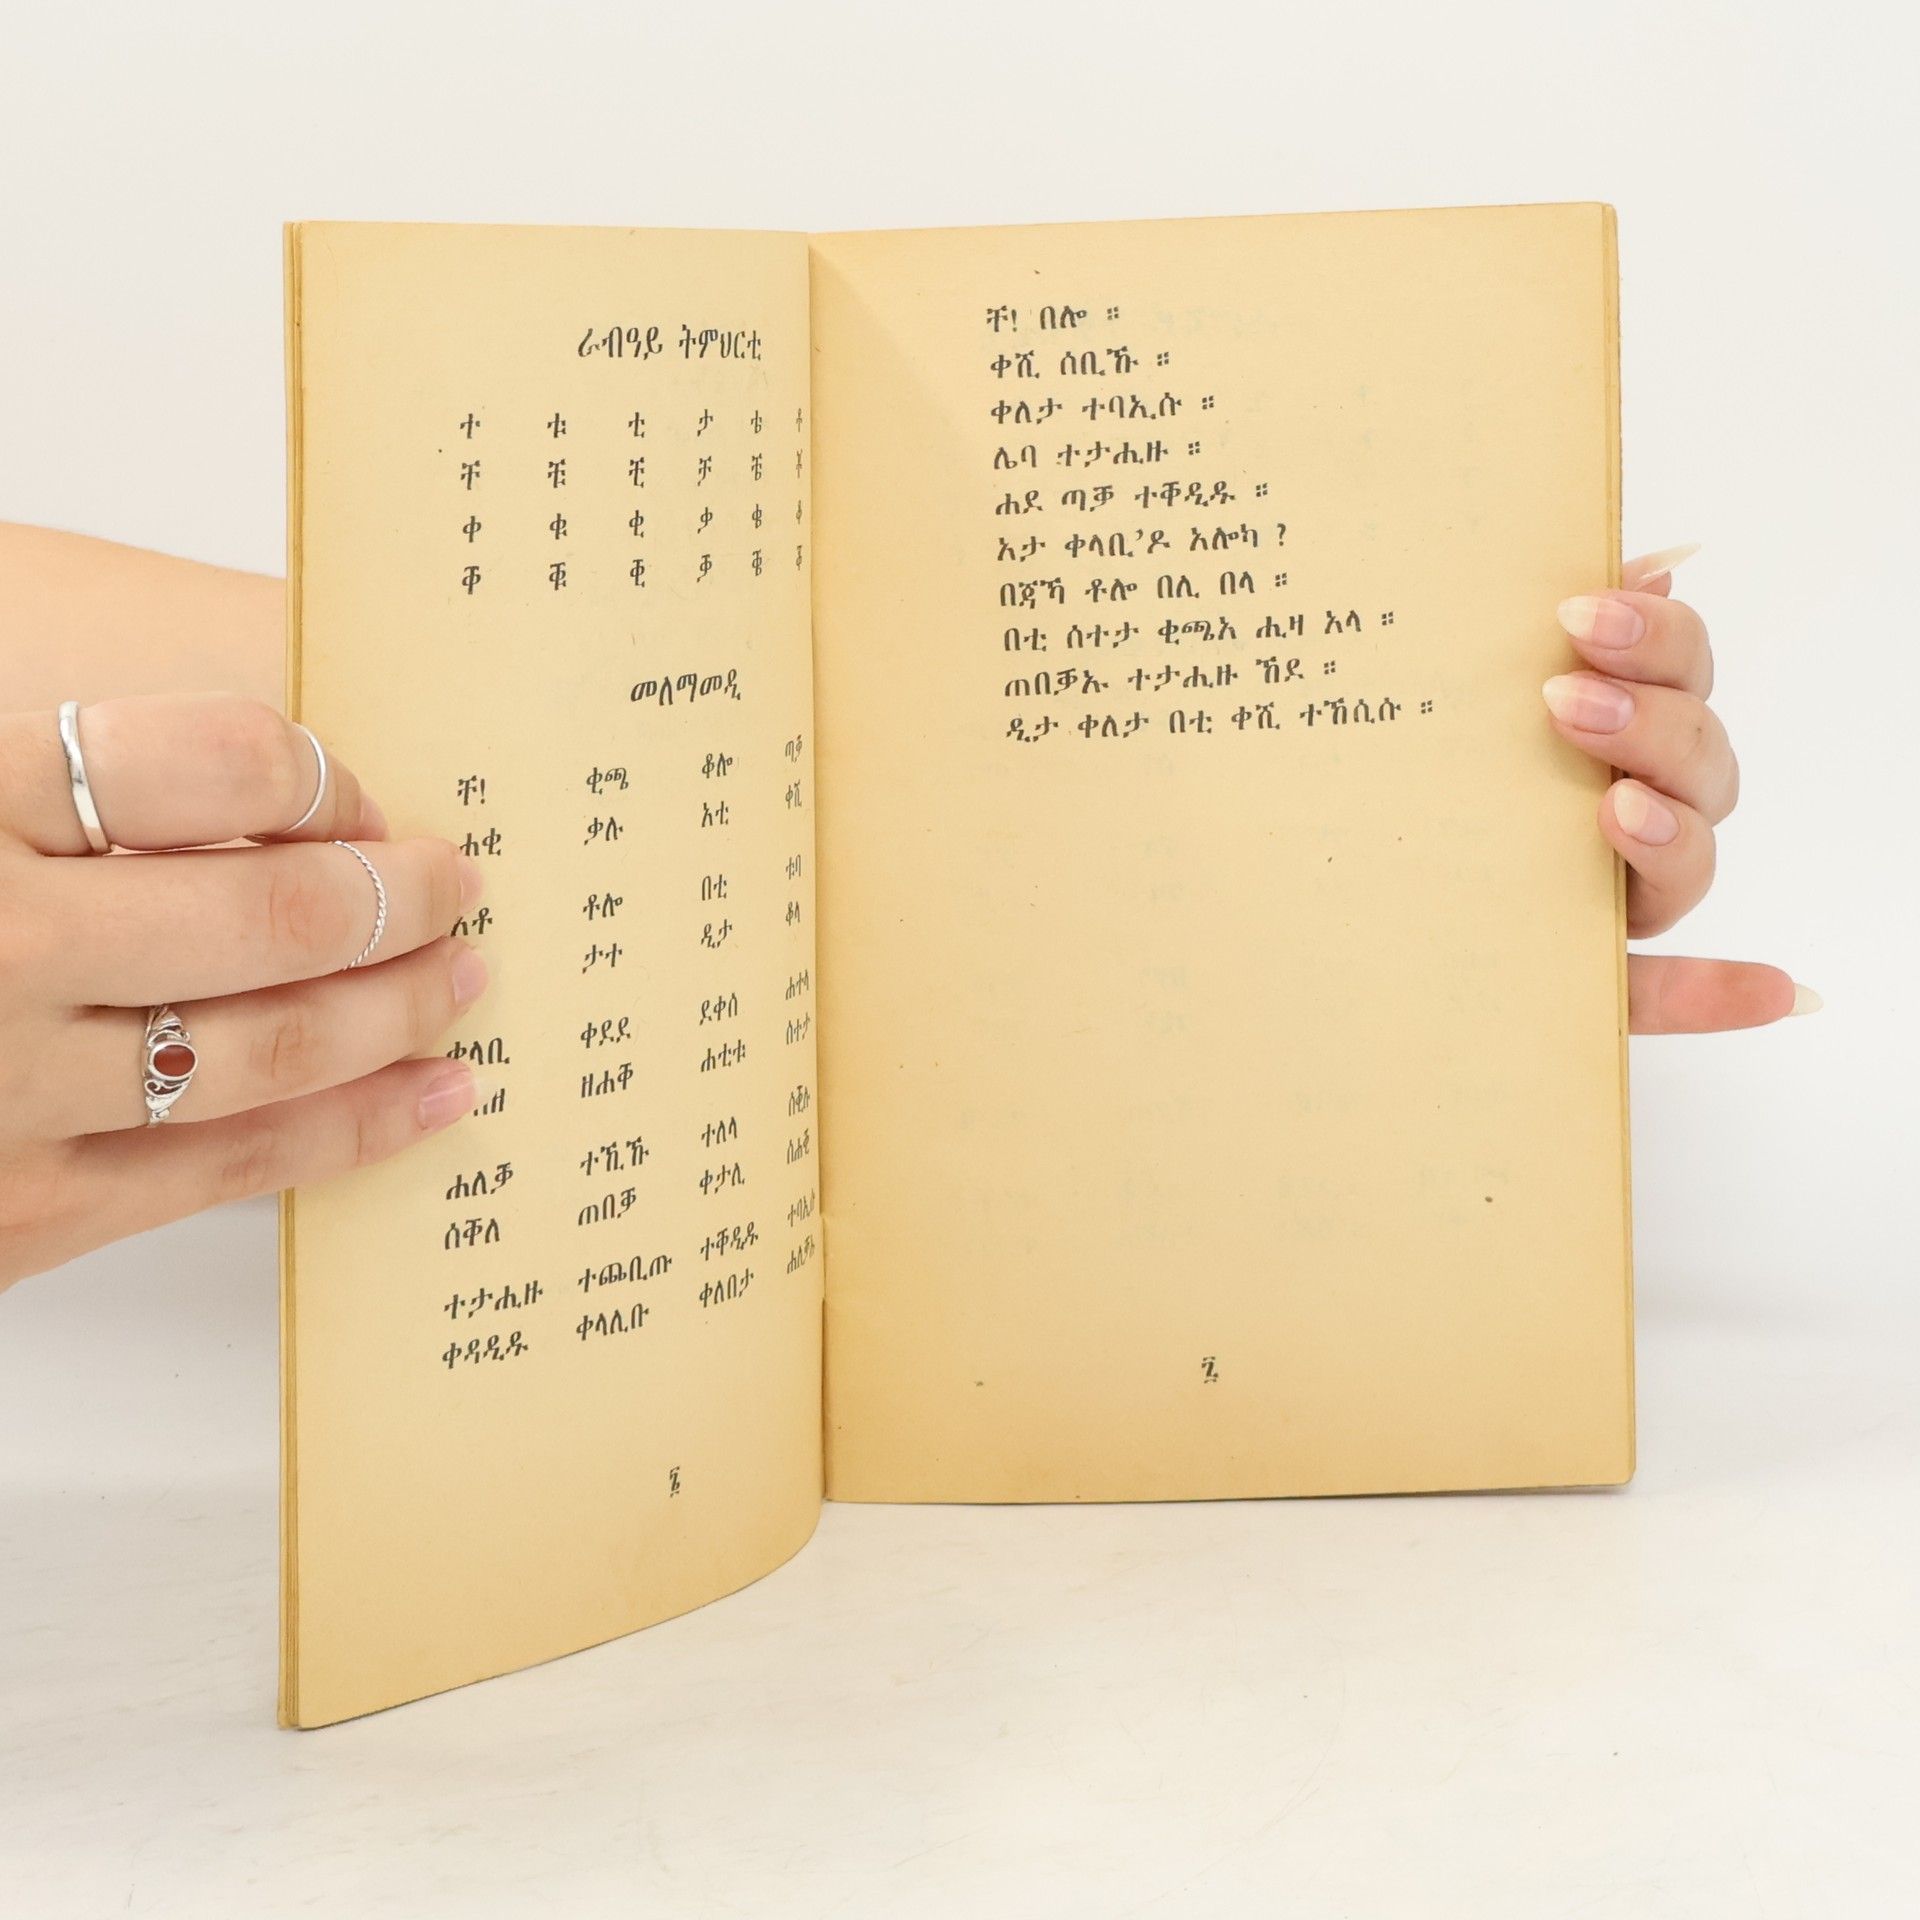 ራብዓይ ትምህርቲ
ተ ቱ ቲ ታ ቴ ቶ
ቸ ቹ ቺ ቻ ቼ ቾ
ቀ ቁ ቂ ቃ ቄ ቆ
ቐ ቑ ቒ ቓ ቔ ቖ
መለማመዲ
ቸ! ቂጫ ቆሎ ጣቓ
ሐቂ ቃሉ አቲ ቀሺ
አቶ ቶሎ በቲ ቱባ
ታተ ዲታ ቆላ
ቀላቢ ቀደደ ደቀሰ ሐተላ
ዘሐቐ ሐቲቱ ሰተታ
ሐለቓ ተኺኹ ተለላ ሰቒሉ
ሰቐለ ጠበቓ ቀታሊ ሰሐቒ
ተታሒዙ ተጨቢጡ ተቐዲዱ ተባኢሱ
ቀዳዲዱ ቀላሊቡ ቀለበታ ሐለቓኡ
፮
ቸ! በሎ ።
ቀሺ ሰቢኹ ።
ቀለታ ተባኢሱ ።
ሌባ ተታሒዙ ።
ሐደ ጣቓ ተቐዲዱ ።
አታ ቀላቢ'ዶ አሎካ ?
በጃኻ ቶሎ በሊ በላ ።
በቲ ሰተታ ቂጫአ ሒዛ አላ ።
ጠበቓኡ ተታሒዙ ኸደ ።
ዲታ ቀለታ በቲ ቀሺ ተኸሲሱ ።
፯